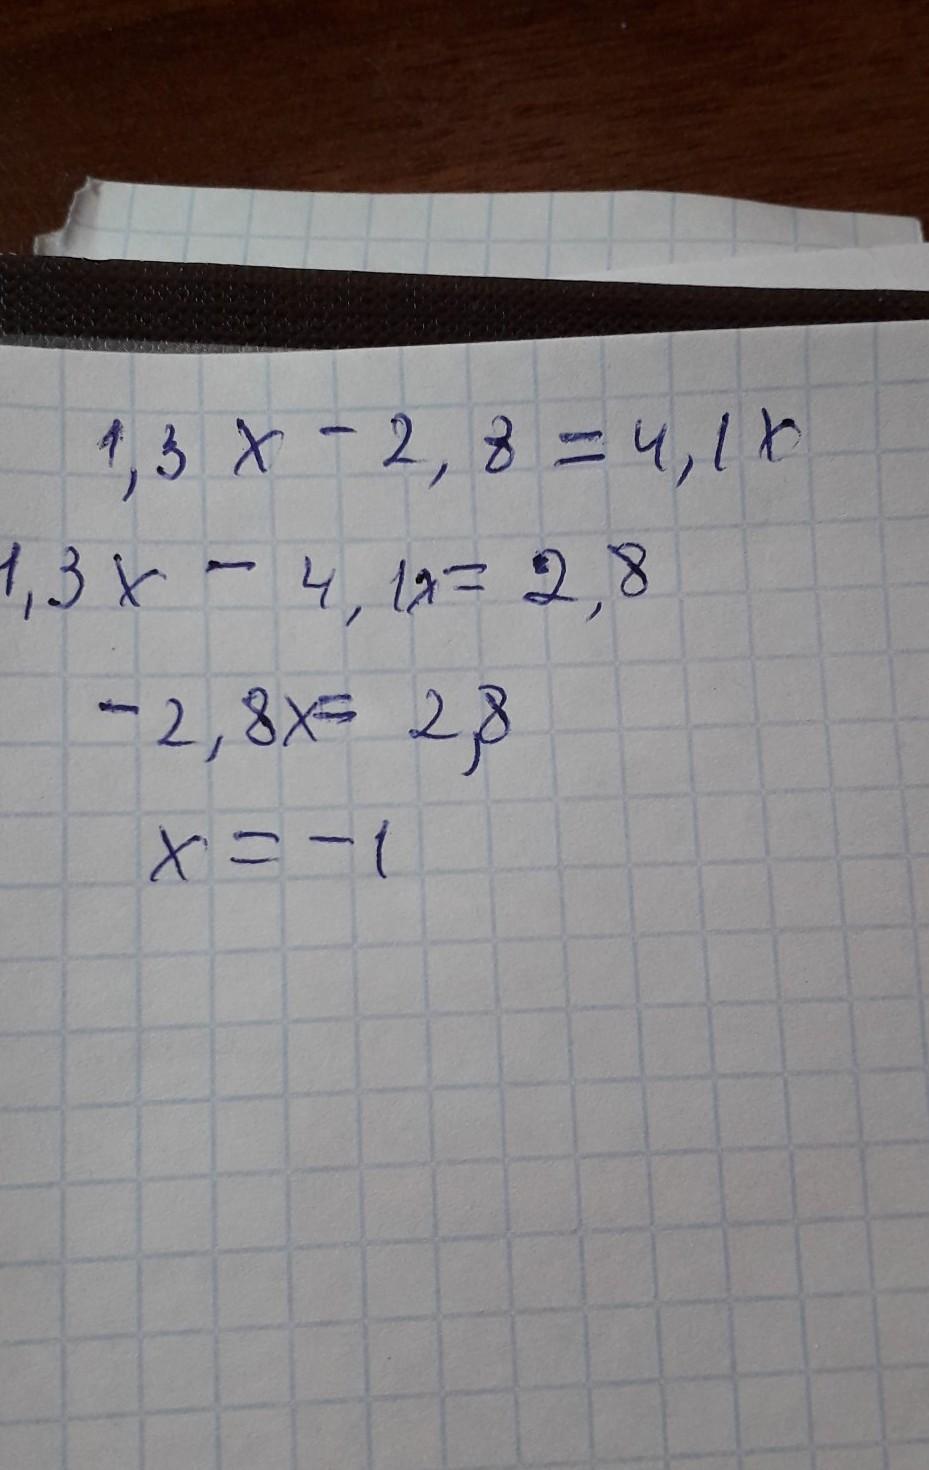 1,3x - 2,8 = 4,1x
1,3x - 4,1x = 2,8
-2,8x = 2,8
x = -1